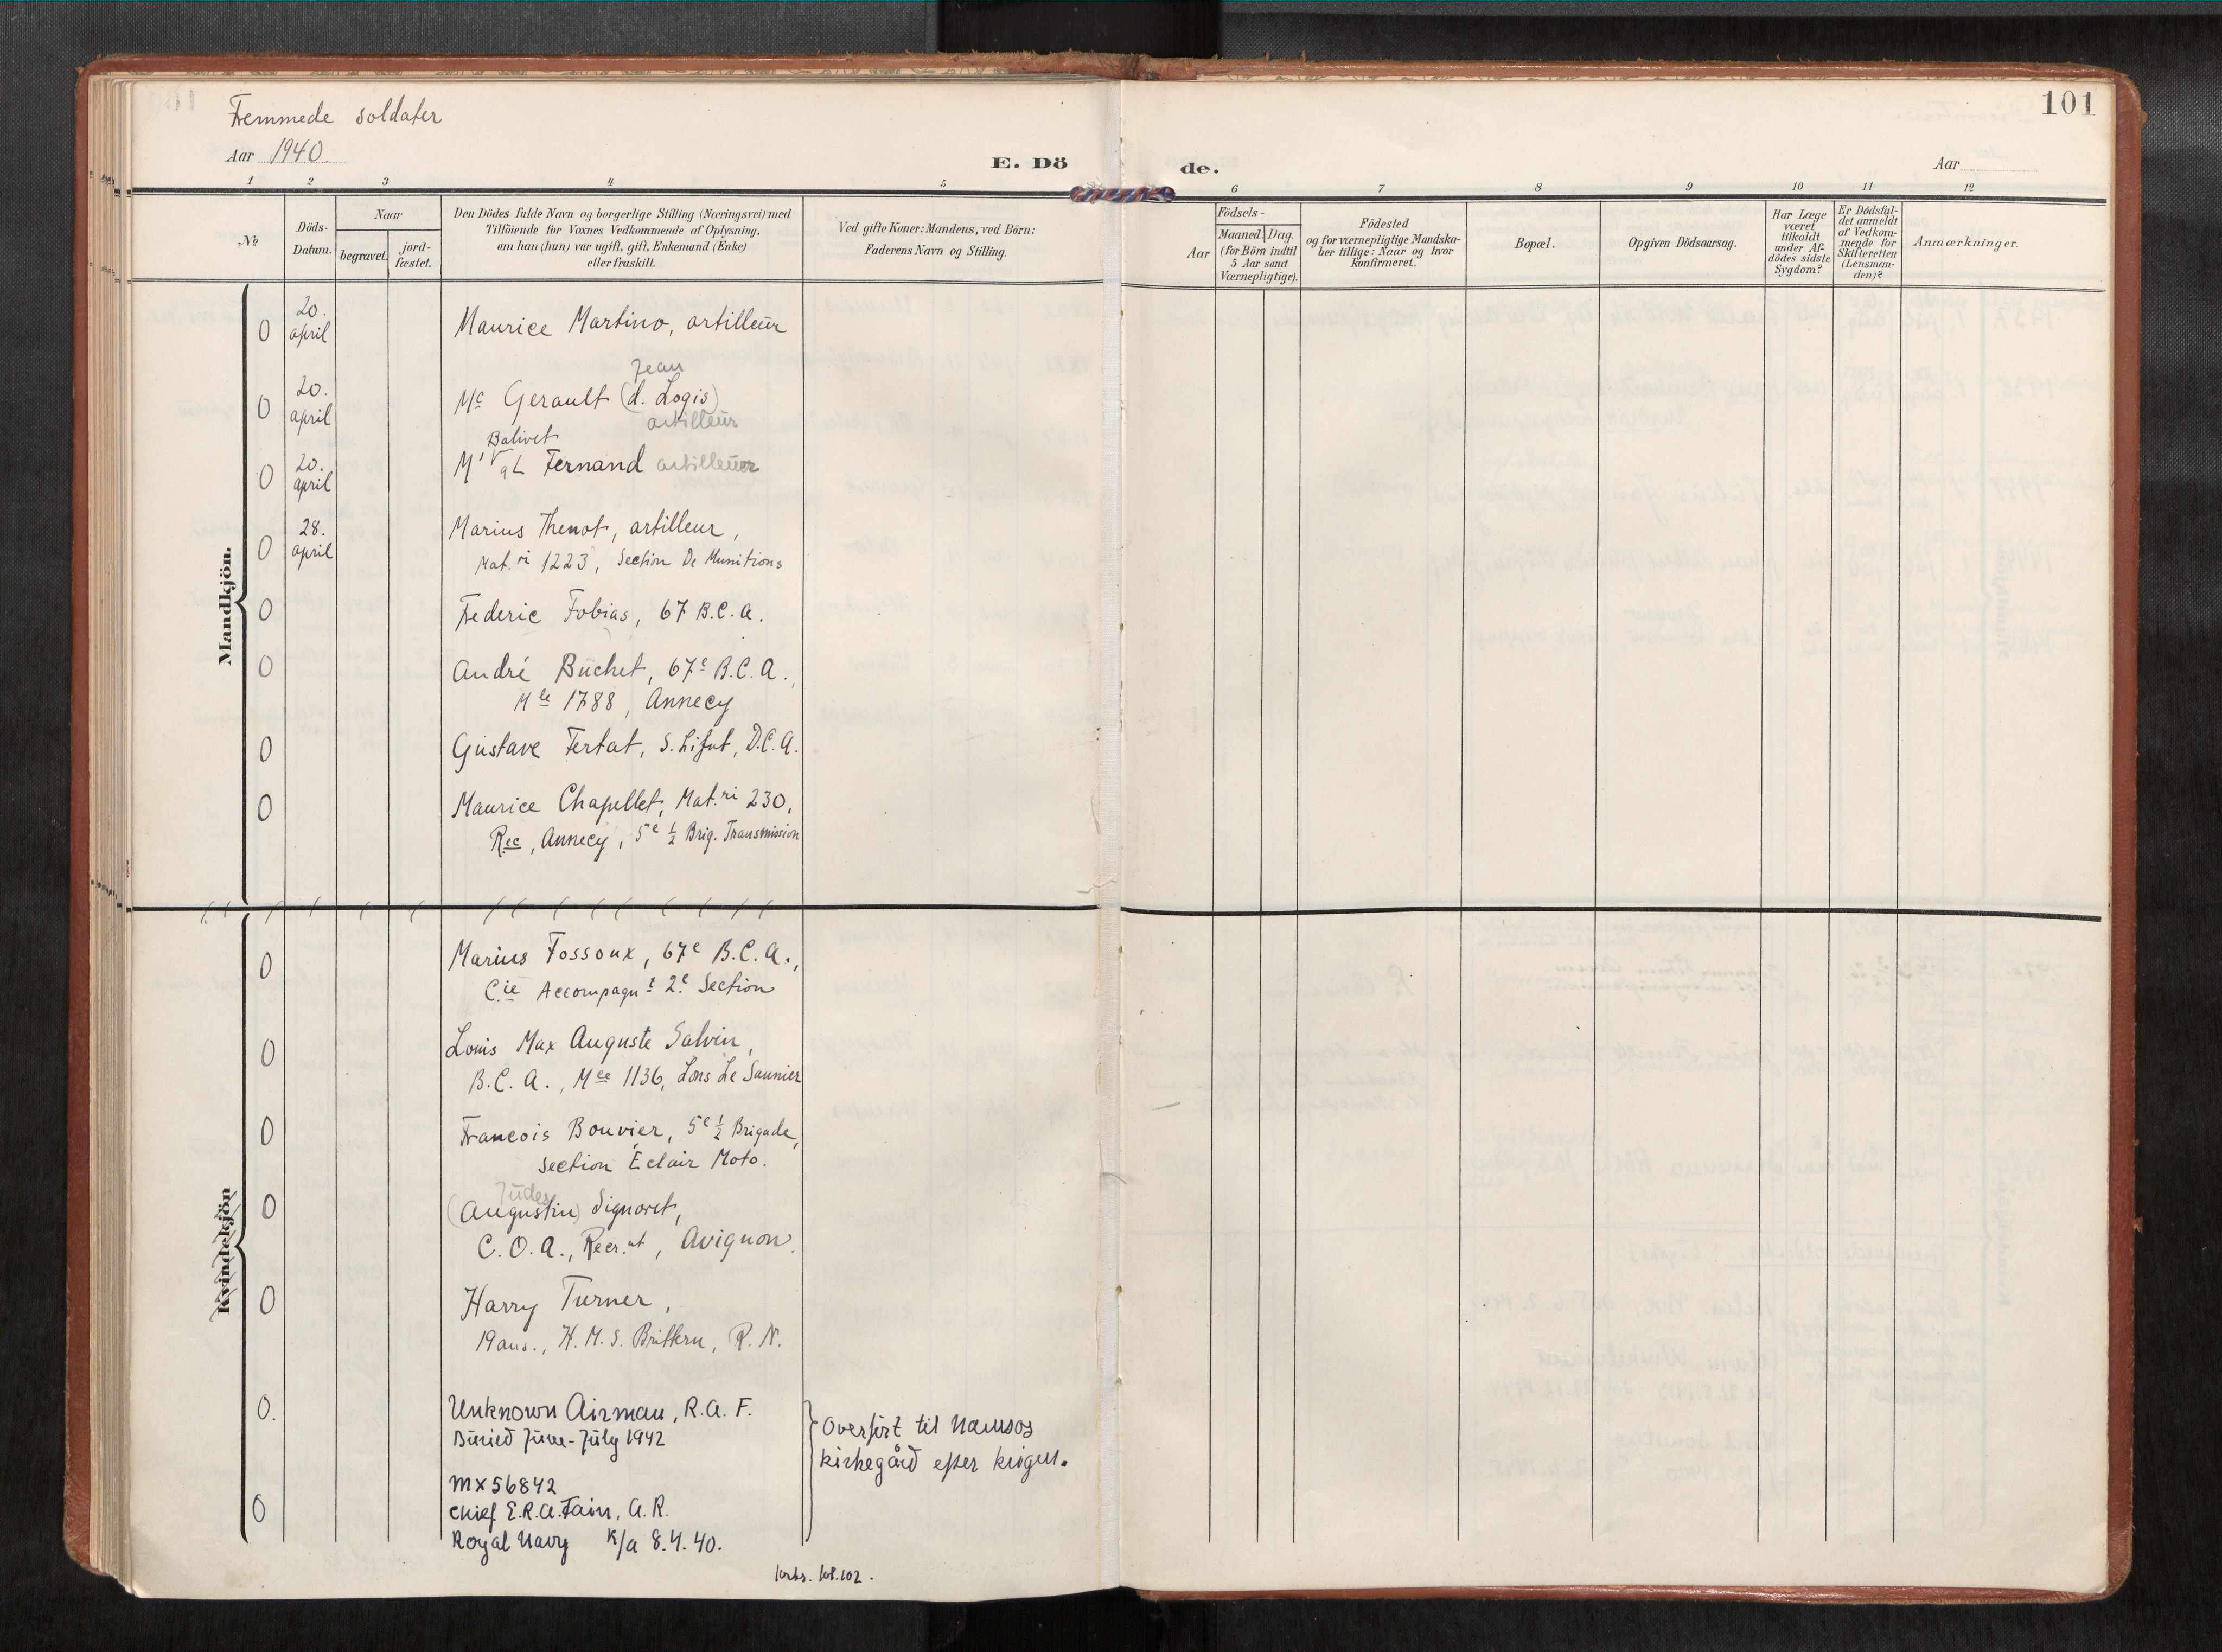 Fremmede soldater
Aar 1940.
E. Dö
de.
101
Aar
1 2 3 4 5 6 7 8 9 10 11 12
No
Döds-
Datum.
Naar
begravet.
jord-
fæstet.
Den Dödes fulde Navn og borgerlige Stilling (Næringsvei) med
Tilföiende for Voxnes Vedkommende af Oplysning,
om han (hun) var ugift, gift, Enkemand (Enke)
eller fraskilt.
Ved gifte Koner: Mandens, ved Börn:
Faderens Navn og Stilling.
Födsels-
Aar
Maaned.
Dag.
(for Börn indtil
5 Aar samt
Værnepligtige).
Födested
og for værnepligtige Mandska-
ber tillige: Naar og hvor
konfirmeret.
Bopæl.
Opgiven Dödsaarsag.
Har Læge
været
tilkaldt
under Af-
dödes sidste
Sygdom?
Er Dödsfal-
det anmeldt
af Vedkom-
mende for
Skifteretten
(Lensman-
den)?
Anmærkninger.
Mandkjön.
0 20. april Maurice Martino, artilleur
Jean
0 20. april Mc Gerault (d. Logis)
artilleur
Balivet
0 20. april Fernand artilleur
0 28. april Marius Thenot, artilleur,
Mat.ri 1223, Section De Munitions
0 Frederic Tobias, 67 B.C.A.
0 André Buchet, 67e B.C.A.,
Mle 1788, Annecy
0 Gustave Tertat, S. , D.C.A.
0 Maurice Chapellet, Mat.ri 230,
Rec, Annecy, 5e 1/2 Brig. Transmission
Kvindekjön
0 Marius Fossoux, 67e B.C.A.,
Cie Accompagnt 2e Section
0 Louis Max Auguste Salvin,
B.C.A., Mle 1136, Lons Le Saunier
0 Francois Bouvier, 5e 1/2 Brigade,
Section Éclair Moto.
Jules
0 (Augustin) Signoret,
C.O.A., Recr.nt, Avignon.
0 Harry Turner,
19 ans., H.M.S. Bittern, R.N.
0. Unknown Airman, R.A.F.
Buried June-July 1942
Overført til Namsos
kirkegård efter krigen.
MX56842
0 Chief E.R.A. Fain, A.R.
Royal Navy K/a 8.4.40.
forts. fol. 102.